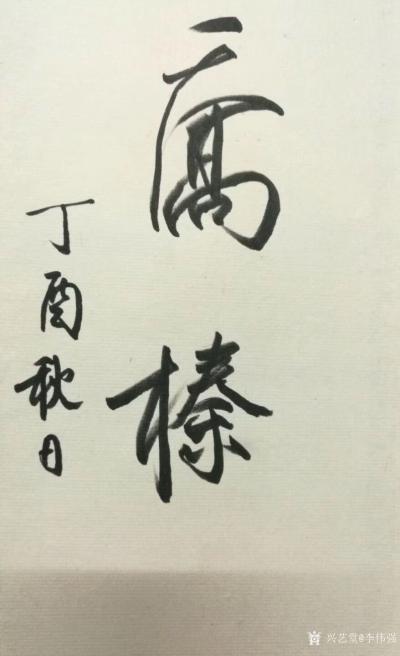 高榛
丁酉秋日
兴艺堂@李伟强